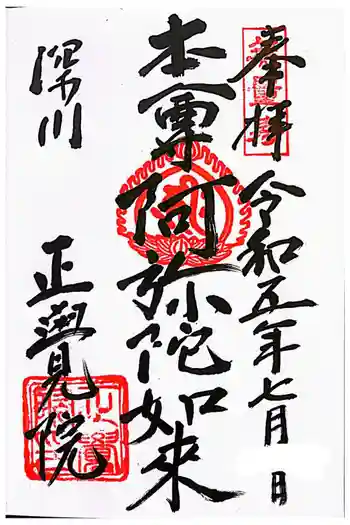 奉拝
令和五年七月 日
本尊
阿弥陀如来
深川
正覺院